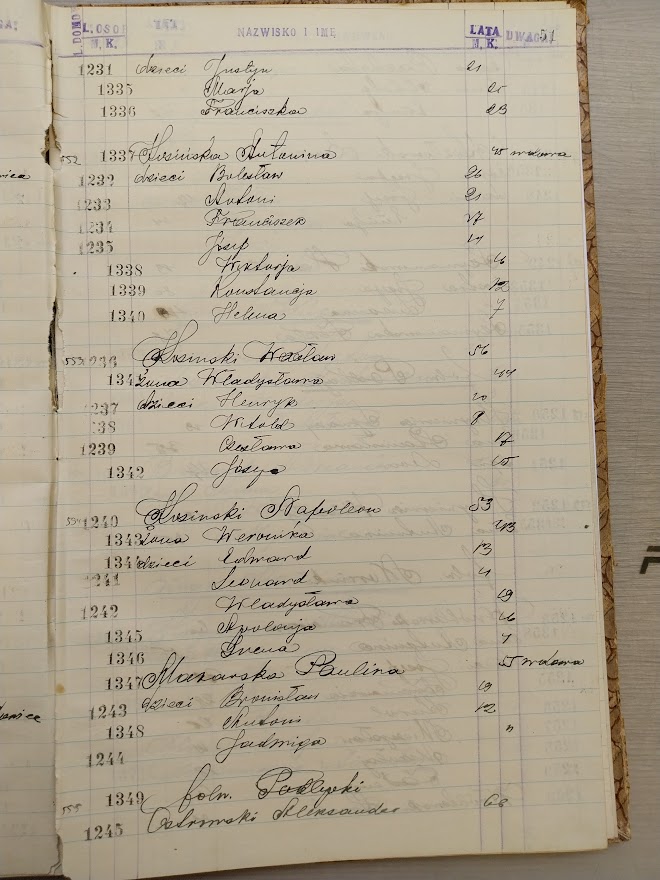 L. DOMU L. OSOB M. K. NAZWISKO I IMIĘ LATA M. K. UWAGA 51
1231 dzieci Justyn 21
1335 Marja 25
1336 Franciszka 23
552 1337 Kosińska Antonina 45 wdowa
1232 dzieci Bolesław 26
1233 Antoni 21
1234 Franciszek 17
1235 Józef 14
1338 Wiktorja 16
1339 Konstancja 12
1340 Helena 7
553 1236 Kosinski Wacław 56
1341 żona Władysława 44
1237 dzieci Henryk 10
1238 Witold 8
1239 Czesława 17
1342 Józefa 15
554 1240 Kosinski Napoleon 53
1343 żona Weronika 43
1344 dzieci Edward 13
1241 Leonard 11
1242 Władysława 19
1345 Apolonja 16
1346 Irena 7
1347 Mazarska Paulina 55 wdowa
1243 dzieci Bronisław 19
1348 Antoni 12
1244 Jadwiga 11
1349 folw.
555 1245 Ostrowski Aleksander 68